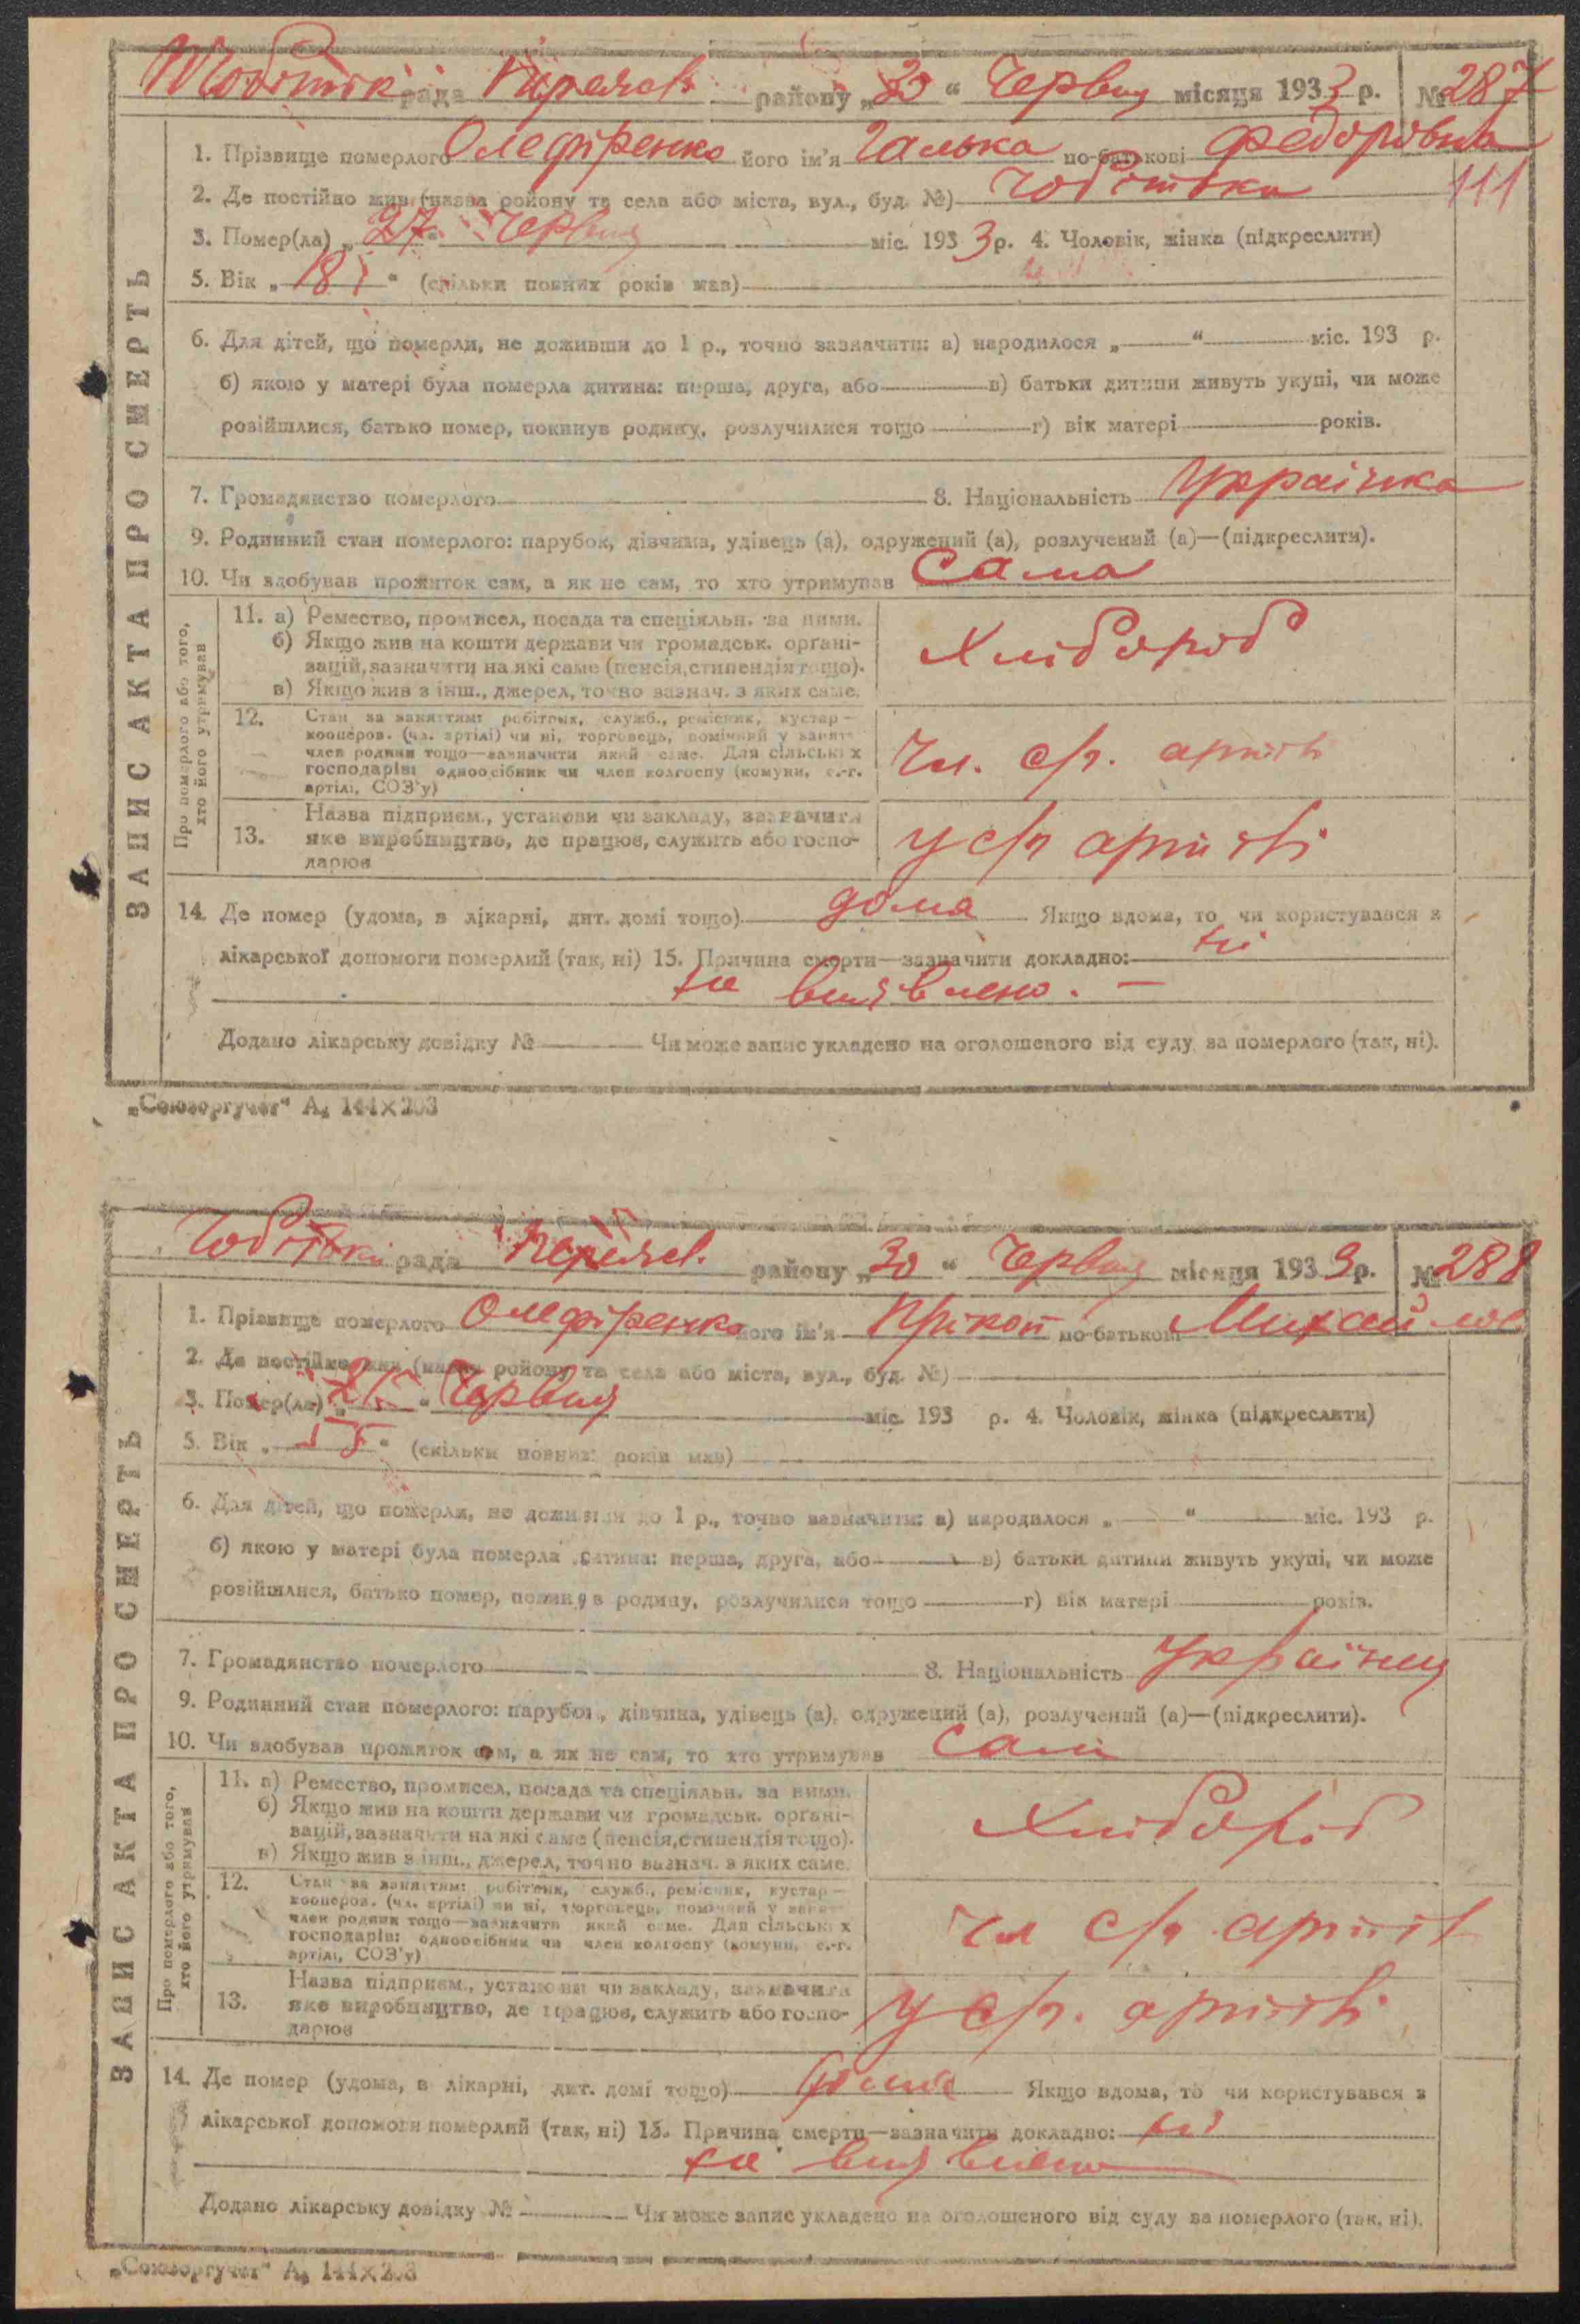 рада Переясл. району „30“ Червня місяця 1933 р. № 287
1. Прізвище померлого Олефіренко його ім'я Галька по-батькові Федоровна
2. Де постійно жив (назва ройону та села або міста, вул., буд. №) Чобітьки 111
3. Помер(ла) „27“ Червня міс. 1933 р. 4. Чоловік, жінка (підкреслити)
5. Вік „18“ (скільки повних років мав)
6. Для дітей, що померли, не доживши до 1 р., точно зазначити: а) народилося „ “ міс. 193 р.
б) якою у матері була померла дитина: перша, друга, або в) батьки дитини живуть укупі, чи може
розійшлися, батько помер, покинув родину, розлучилися тощо г) вік матері років.
7. Громадянство померлого 8. Національність Українка
9. Родинний стан померлого: парубок, дівчина, удівець (а), одружений (а), розлучений (а)—(підкреслити).
10. Чи здобував прожиток сам, а як не сам, то хто утримував Сама
ЗАПИС АКТА ПРО СМЕРТЬ
Про померлого або того,
хто його утримував
11. а) Ремество, промисел, посада та спеціяльн. за ними.
б) Якщо жив на кошти держави чи громадськ. орґані-
зацій, зазначити на які саме (пенсія, стипендія тощо).
в) Якщо жив з інш., джерел, точно зазнач. з яких саме.
Хлібороб
12. Стан за заняттям: робітник, служб., ремісник, кустар—
кооперов. (чл. артілі) чи ні, торговець, помічний у занят.
член родини тощо—зазначити який саме. Для сільських
господарів: одноосібник чи член колгоспу (комуни, с.-г.
артілі, СОЗ'у)
Чл. с/г. артіль
13. Назва підприєм., установи чи закладу, зазначити
яке виробництво, де працює, служить або госпо-
дарює
у с/г артілі
14. Де помер (удома, в лікарні, дит. домі тощо) дома Якщо вдома, то чи користувався з
лікарської допомоги померлий (так, ні) 15. Причина смерти—зазначити докладно: ні
не виявлено. —
Додано лікарську довідку № Чи може запис укладено на оголошеного від суду за померлого (так, ні).
„Союзоргучет“ А₅ 144×203
Чобітьки рада Переясл. району „30“ Червня місяця 1933 р. № 288
1. Прізвище померлого Олефіренко його ім'я Прікоп по-батькові
2. Де постійно жив (назва ройону та села або міста, вул., буд. №)
3. Помер(ла) „ “ Червня міс. 193 р. 4. Чоловік, жінка (підкреслити)
5. Вік „ “ (скільки повних років мав)
6. Для дітей, що померли, не доживши до 1 р., точно зазначити: а) народилося „ “ міс. 193 р.
б) якою у матері була померла дитина: перша, друга, або в) батьки дитини живуть укупі, чи може
розійшлися, батько помер, покинув родину, розлучилися тощо г) вік матері років.
7. Громадянство померлого 8. Національність
9. Родинний стан померлого: парубок, дівчина, удівець (а), одружений (а), розлучений (а)—(підкреслити).
10. Чи здобував прожиток сам, а як не сам, то хто утримував Сам
ЗАПИС АКТА ПРО СМЕРТЬ
Про померлого або того,
хто його утримував
11. а) Ремество, промисел, посада та спеціяльн. за ними.
б) Якщо жив на кошти держави чи громадськ. орґані-
зацій, зазначити на які саме (пенсія, стипендія тощо).
в) Якщо жив з інш., джерел, точно зазнач. з яких саме.
Хлібороб
12. Стан за заняттям: робітник, служб., ремісник, кустар—
кооперов. (чл. артілі) чи ні, торговець, помічний у занят.
член родини тощо—зазначити який саме. Для сільських
господарів: одноосібник чи член колгоспу (комуни, с.-г.
артілі, СОЗ'у)
чл с/г артіл
13. Назва підприєм., установи чи закладу, зазначити
яке виробництво, де працює, служить або госпо-
дарює
у с/г. артілі
14. Де помер (удома, в лікарні, дит. домі тощо) дома Якщо вдома, то чи користувався з
лікарської допомоги померлий (так, ні) 15. Причина смерти—зазначити докладно: ні
не виявлено
Додано лікарську довідку № Чи може запис укладено на оголошеного від суду за померлого (так, ні).
„Союзоргучет“ А₅ 144×203